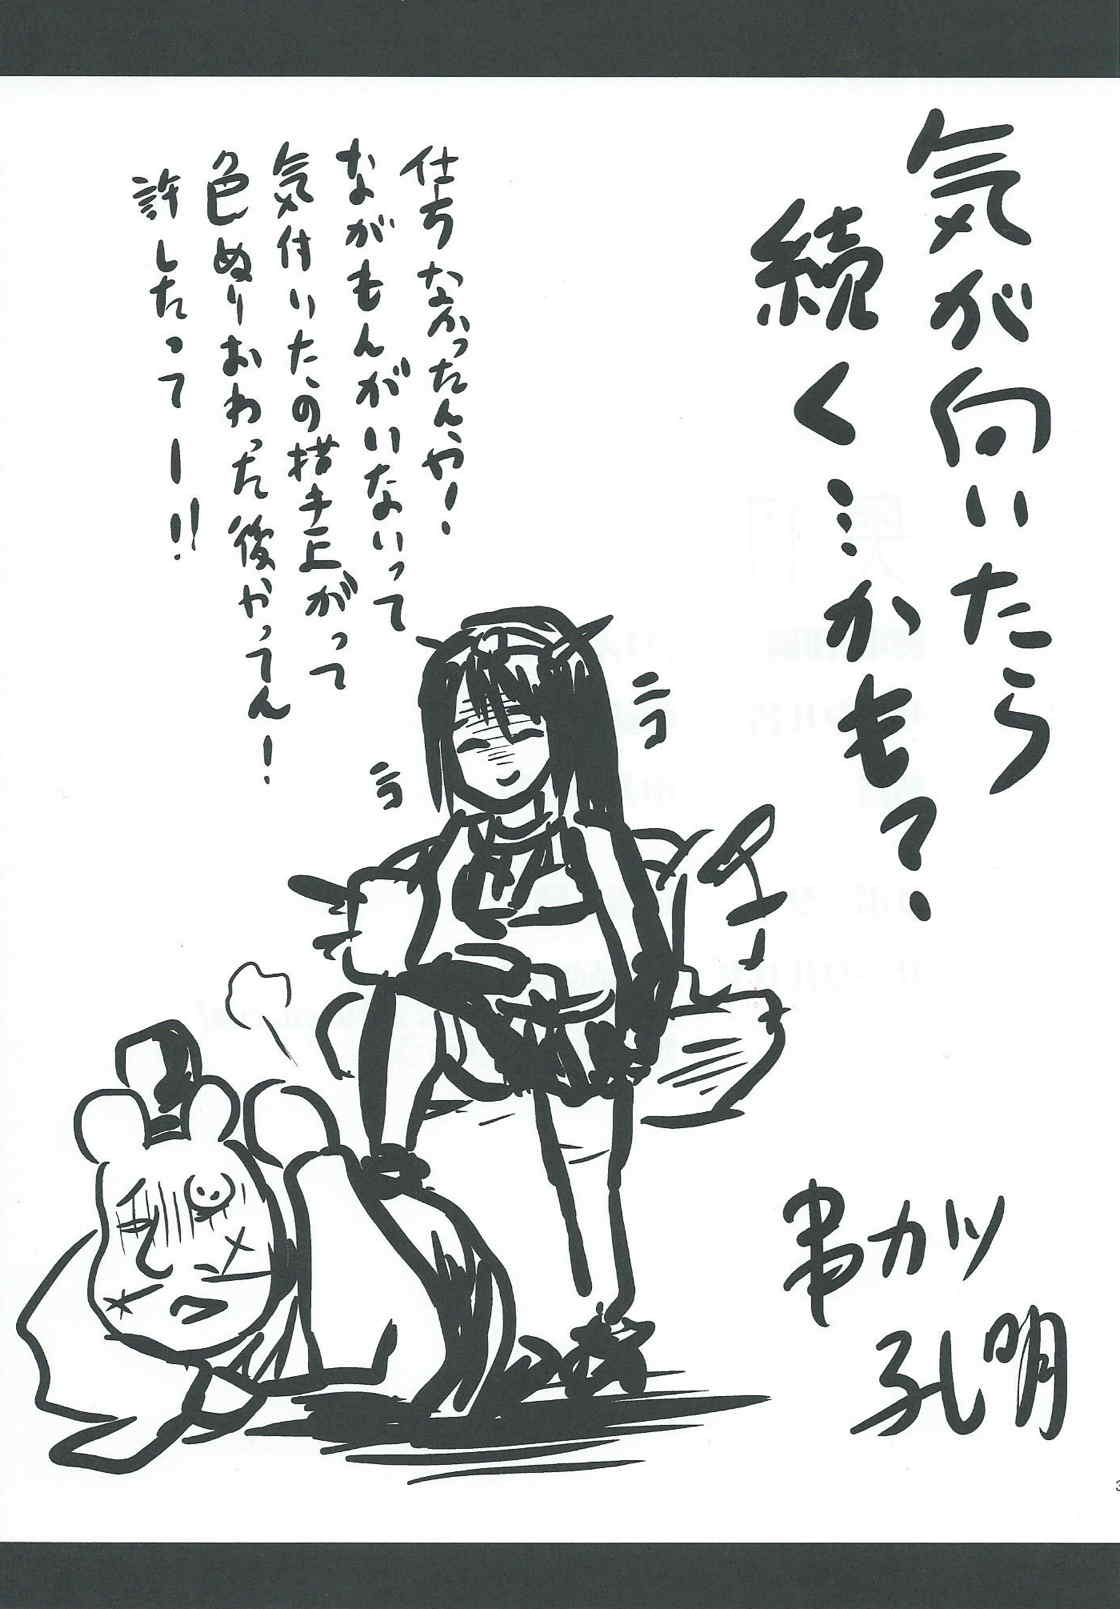 気が向いたら
続く…かも？
仕方なかったんや！
ながもんがいないって
気付いたの描き上がって
色ぬりおわった後やってん！
許したってー！！
ニコ
ニコ
串カツ
孔明